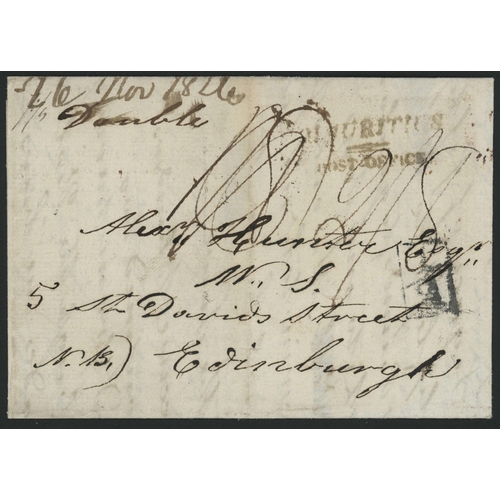 16 Nov 1826
Double
MAURITIUS
POST OFFICE
Alexr Hunter Esqr
W. S.
5 St Davids Street
N.B.) Edinburgh